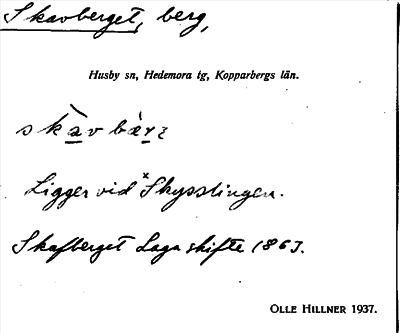 Skavberget, berg,
Husby sn, Hedemora tg, Kopparbergs län.
skàvbær̀ʒ
Ligger vid ˣSkysslingen.
Skafberget Laga skifte 1863.
OLLE HILLNER 1937.